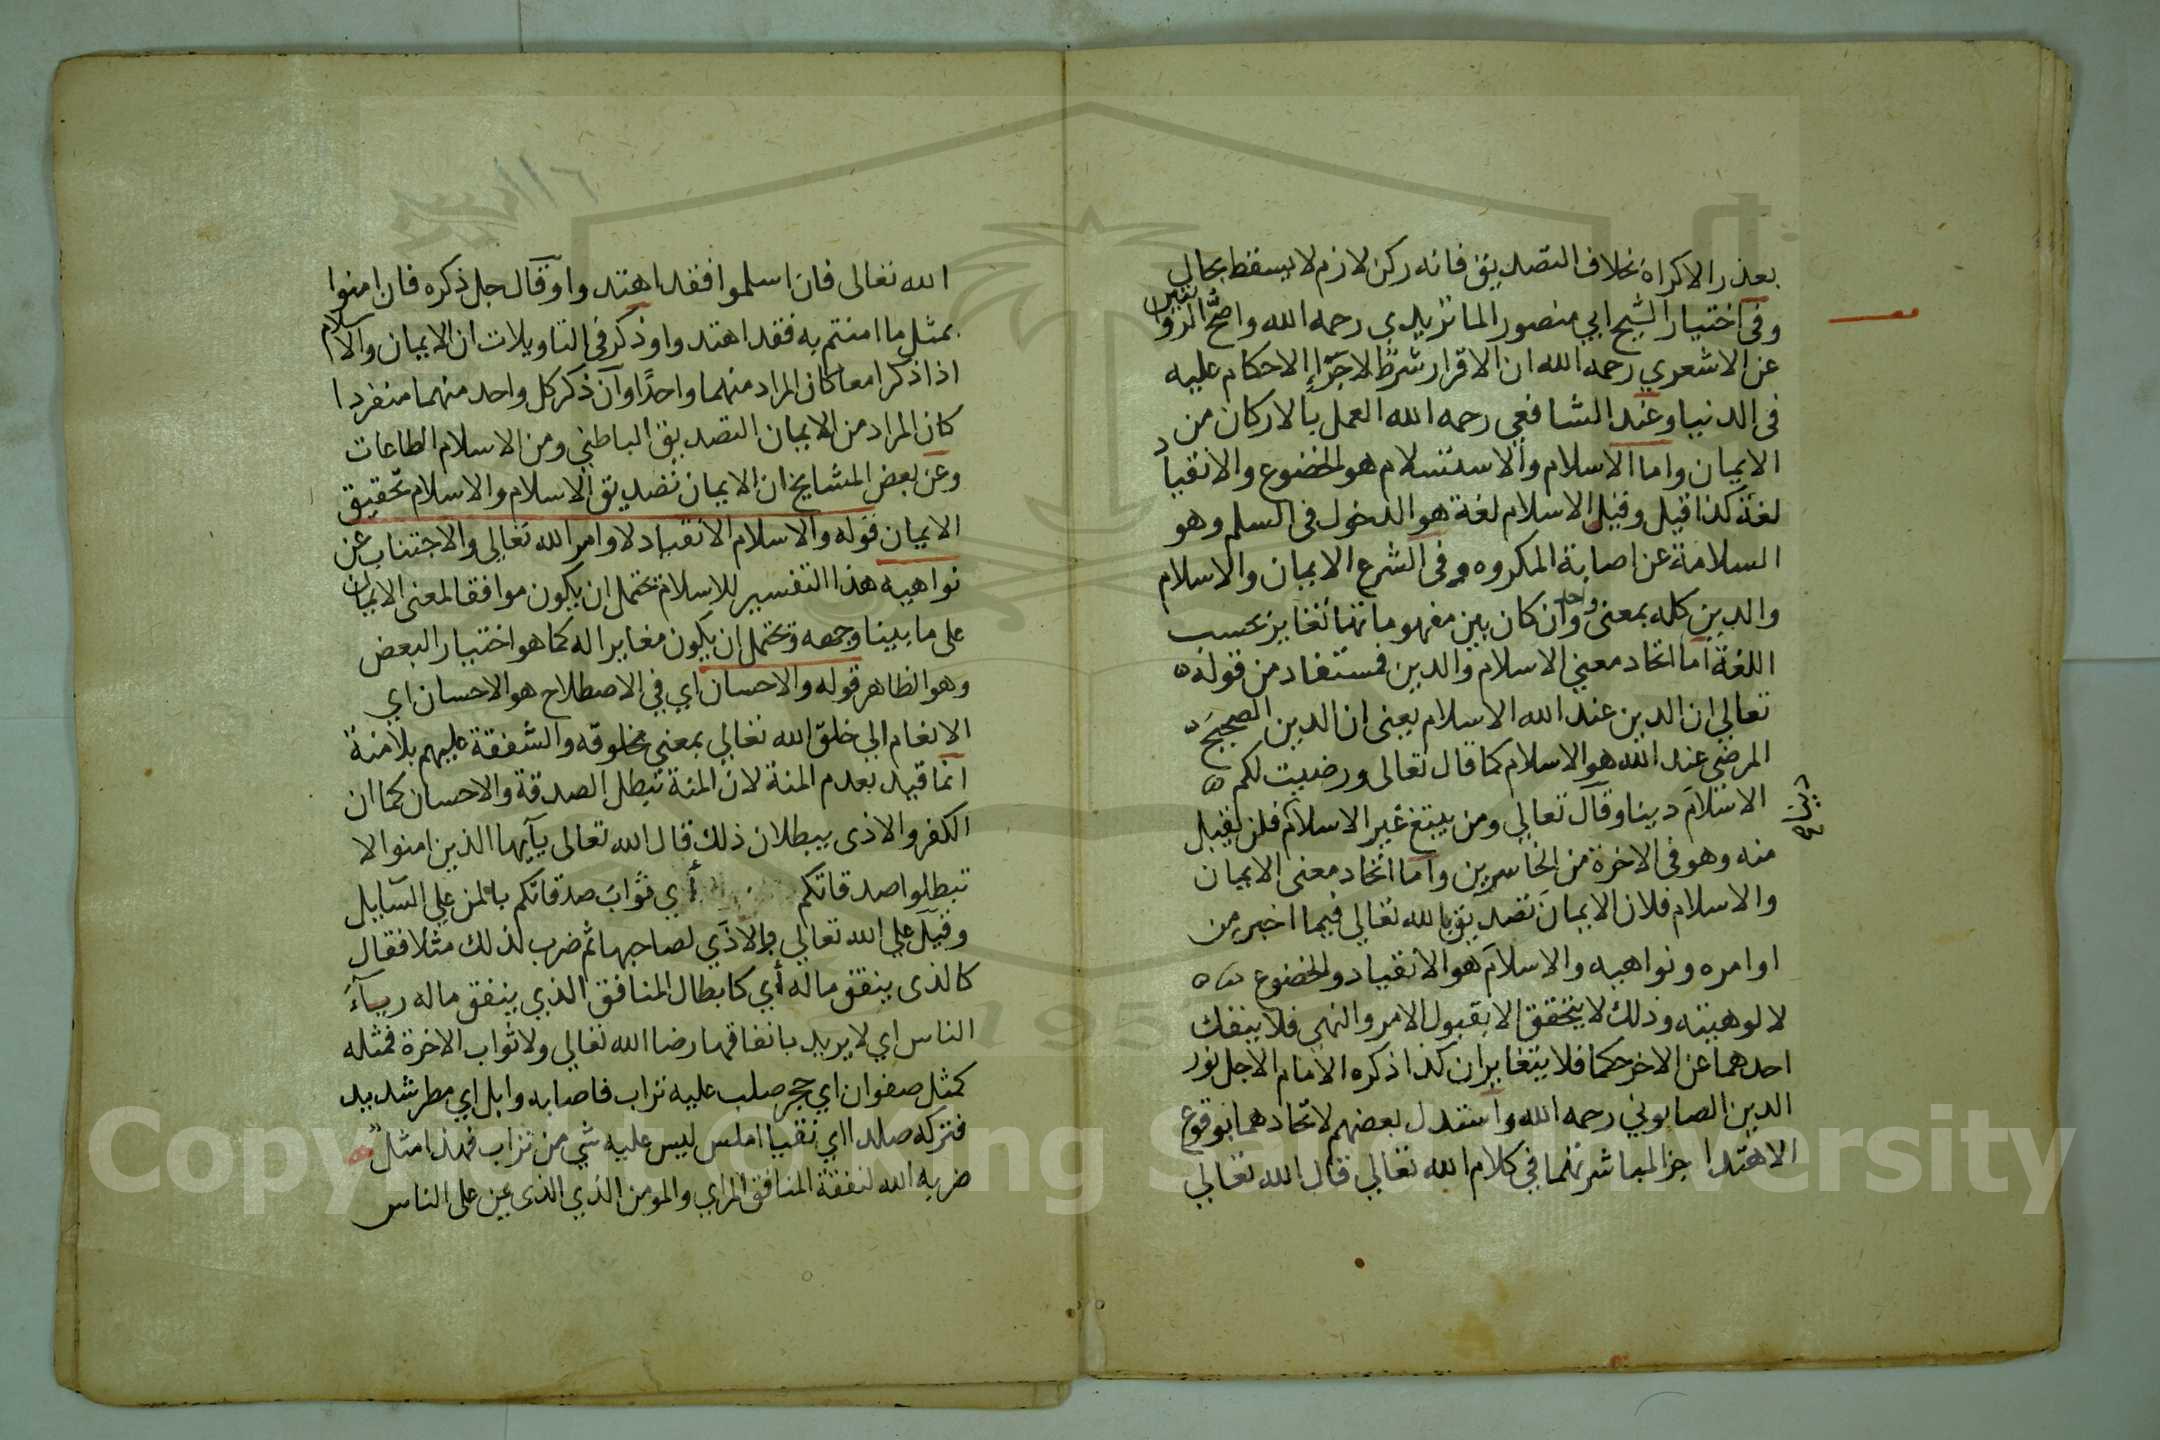 بعذر الاكراه بخلاف التصديق فانه ركن لازم لا يسقط بحال
وفى اختيار الشيخ ابي منصور الماتريدي رحمه الله واصح الروايتين
عن الاشعري رحمه الله ان الاقرار شرط لاجراء الاحكام عليه
فى الدنيا وعند الشافعي رحمه الله العمل بالاركان من
الايمان واما الاسلام والاستسلام هو الخضوع والانقياد
لغة كذا قيل وقيل الاسلام لغة هو الدخول فى السلم وهو
السلامة عن اصابة المكروه وفى الشرع الايمان والاسلام
والدين كله بمعنى واحد وان كان بين مفهوماتها تغاير بحسب
اللغة اما اتحاد معنى الاسلام والدين فمستفاد من قوله
تعالي ان الدين عند الله الاسلام يعنى ان الدين الصحيح
المرضي عند الله هو الاسلام كما قال تعالى ورضيت لكم
الاسلام دينا وقال تعالي ومن يبتغ غير الاسلام فلن يقبل
منه وهو فى الاخرة من الخاسرين واما اتحاد معنى الايمان
والاسلام فلان الايمان تصديق بالله تعالي فيما اخبر من
اوامره ونواهيه والاسلام هو الانقياد والخضوع
لالوهيته وذلك لا يتحقق الا بقبول الامر والنهي فلا ينفك
احدهما عن الاخر حكما فلا يتغايران كذا ذكره الامام الاجل نور
الدين الصابوني رحمه الله واستدل بعضهم لاتحادهما بوقوع
الاهتدا جزا لمباشرتهما في كلام الله تعالي قال الله تعالي
الله تعالى فان اسلموا فقد اهتدوا وقال جل ذكره فان امنوا
بمثل ما امنتم به فقد اهتدوا وذكر في التاويلات ان الايمان والاسلام
اذا ذكرا معا كان المراد منهما واحدا وان ذكر كل واحد منهما منفردا
كان المراد من الايمان التصديق الباطني ومن الاسلام الطاعات
وعن بعض المشايخ ان الايمان تصديق الاسلام والاسلام تحقيق
الايمان قوله والاسلام الانقياد لاوامر الله تعالي والاجتناب عن
نواهيه هذا التفسير للاسلام يحتمل ان يكون موافقا لمعنى الايمان
على ما بينا وجهه ويحتمل ان يكون مغايرا له كما هو اختيار البعض
وهو الظاهر قوله والاحسان اي في الاصطلاح هو الاحسان اي
الانعام الي خلق الله تعالي بمعنى مخلوقه والشفقة عليهم بلا منة
انما قيد بعدم المنة لان المنة تبطل الصدقة والاحسان كما ان
الكفر والاذى يبطلان ذلك قال الله تعالى يآيها الذين امنوا لا
تبطلوا صدقاتكم أي ثواب صدقاتكم بالمن علي السآيل
وقيل علي الله تعالي والاذي لصاحبها ثم ضرب لذلك مثلا فقال
كالذى ينفق ماله أي كابطال المنافق الذي ينفق ماله ريآء
الناس اي لا يريد بانفاقها رضا الله تعالي ولا ثواب الاخرة فمثله
كمثل صفوان اي حجر صلب عليه تراب فاصابه وابل اي مطر شديد
فتركه صلدا اي نقيا املس ليس عليه شي من تراب فهذا مثل
ضربه الله لنفقة المنافق المراي والمومن الذي الذى عن على الناس
Copyright © King Saud University
1957